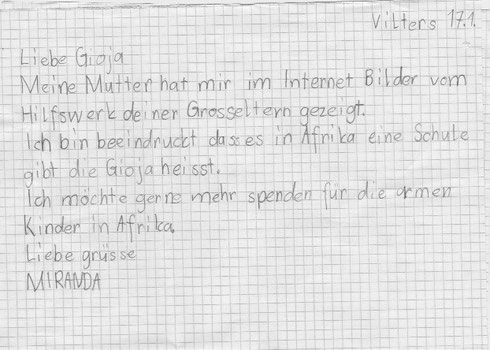 Vilters 17.1.
Liebe Gioja
Meine Mutter hat mir im Internet Bilder vom
Hilfswerk deiner Grosseltern gezeigt.
Ich bin beeindruckt dass es in Afrika eine Schule
gibt die Gioja heisst.
Ich möchte gerne mehr spenden für die armen
Kinder in Afrika.
Liebe grüsse
MIRANDA